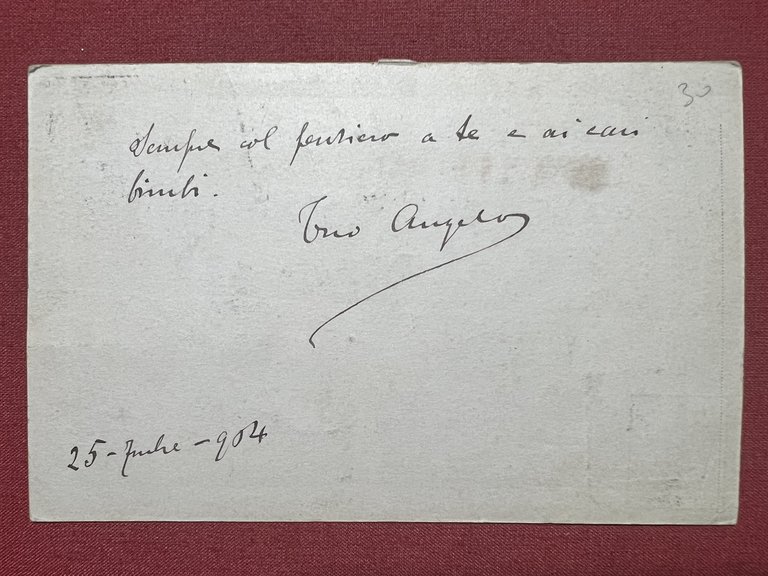 30
Sempre col pensiero a te e ai cari
bimbi.
Tuo Angelo
25 - - 904